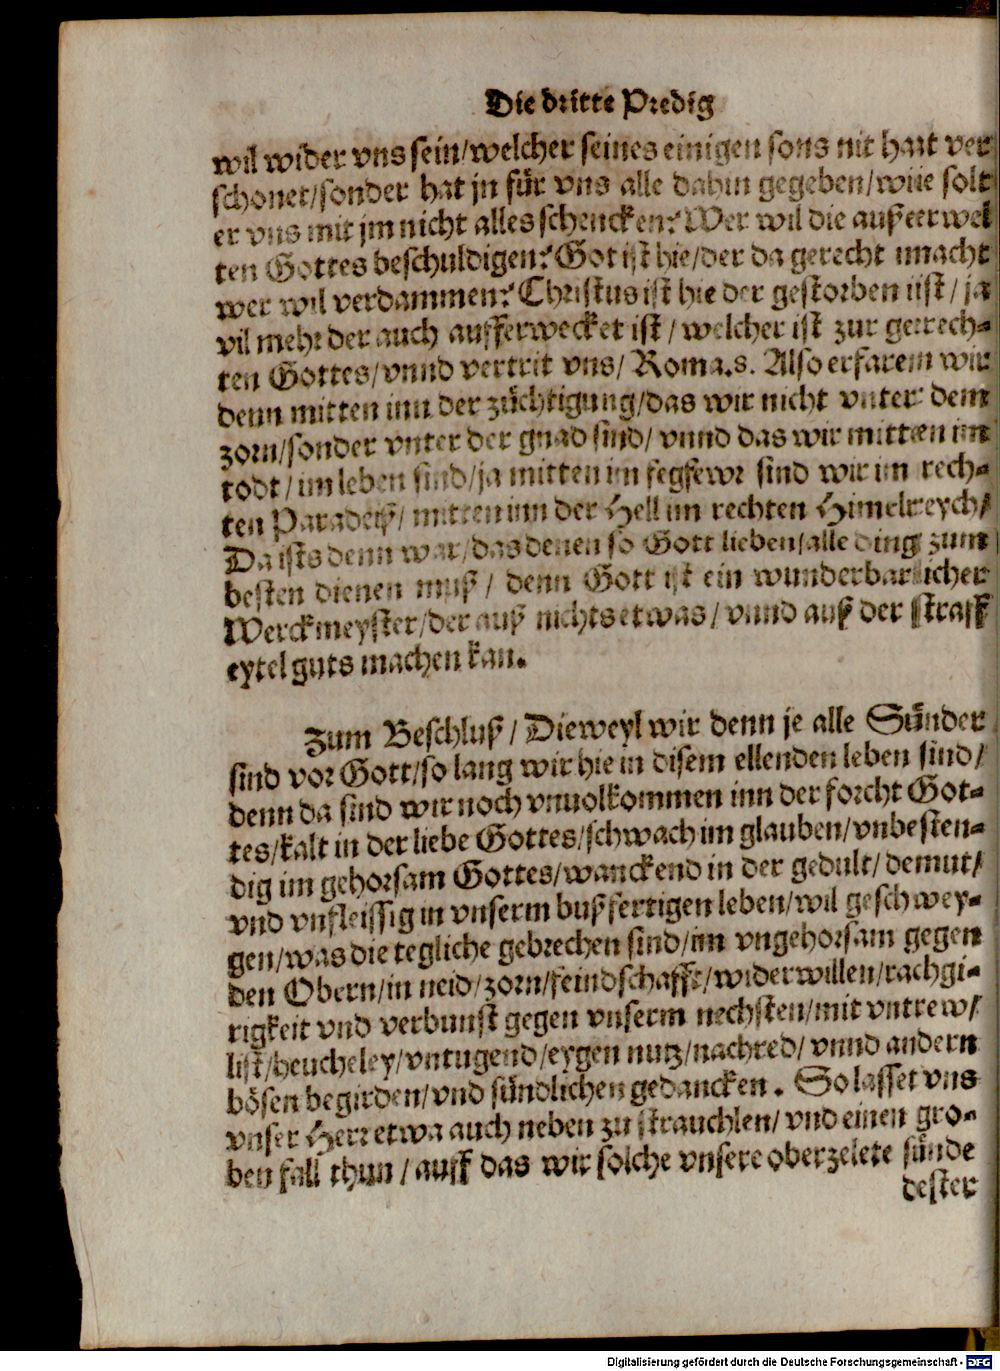 Die dritte Predig
wil wider vns sein/welcher seines einigen sons nit hat ver
schonet/sonder hat jn für vns alle dahin gegeben/wie solt
er vns mit jm nicht alles schencken? Wer wil die außerwel
ten Gottes beschuldigen? Got ist hie/der da gerecht macht
wer wil verdammen? Christus ist hie der gestorben ist/ ja
vil mehr der auch aufferwecket ist / welcher ist zur gerech-
ten Gottes/vnnd vertrit vns/ Roma.8. Also erfaren wir
denn mitten inn der züchtigung/das wir nicht vnter dem
zorn/sonder vnter der gnad sind/ vnnd das wir mitten im
todt/ im leben sind/ja mitten im fegfewr sind wir im rech-
ten Paradeiß/ mitten inn der Hell im rechten Himelreych/
Da ists denn war/das denen so Gott lieben/alle ding zum
besten dienen muß / denn Gott ist ein wunderbarlicher
Werckmeyster/der auß nichts etwas/ vnnd auß der straff
eytel guts machen kan.
Zum Beschluß / Dieweyl wir denn je alle Sünder
sind vor Gott/so lang wir hie in disem ellenden leben sind/
denn da sind wir noch vnuolkommen inn der forcht Got-
tes/kalt in der liebe Gottes/schwach im glauben/vnbesten-
dig im gehorsam Gottes/wanckend in der gedult/ demut/
vnd vnfleissig in vnserm bußfertigen leben/wil geschwey-
gen/was die tegliche gebrechen sind/im vngehorsam gegen
den Obern/in neid/zorn/feindschafft/widerwillen/rachgi-
rigkeit vnd verbunst gegen vnserm nechsten/mit vntrew/
list/heucheley/vntugend/eygen nutz/nachred/ vnnd andern
bösen begirden/vnd sündlichen gedancken. So lasset vns
vnser Herr etwa auch neben zu strauchlen/ vnd einen gro-
ben fall thun / auff das wir solche vnsere oberzelete sünde
dester
Digitalisierung gefördert durch die Deutsche Forschungsgemeinschaft - DFG